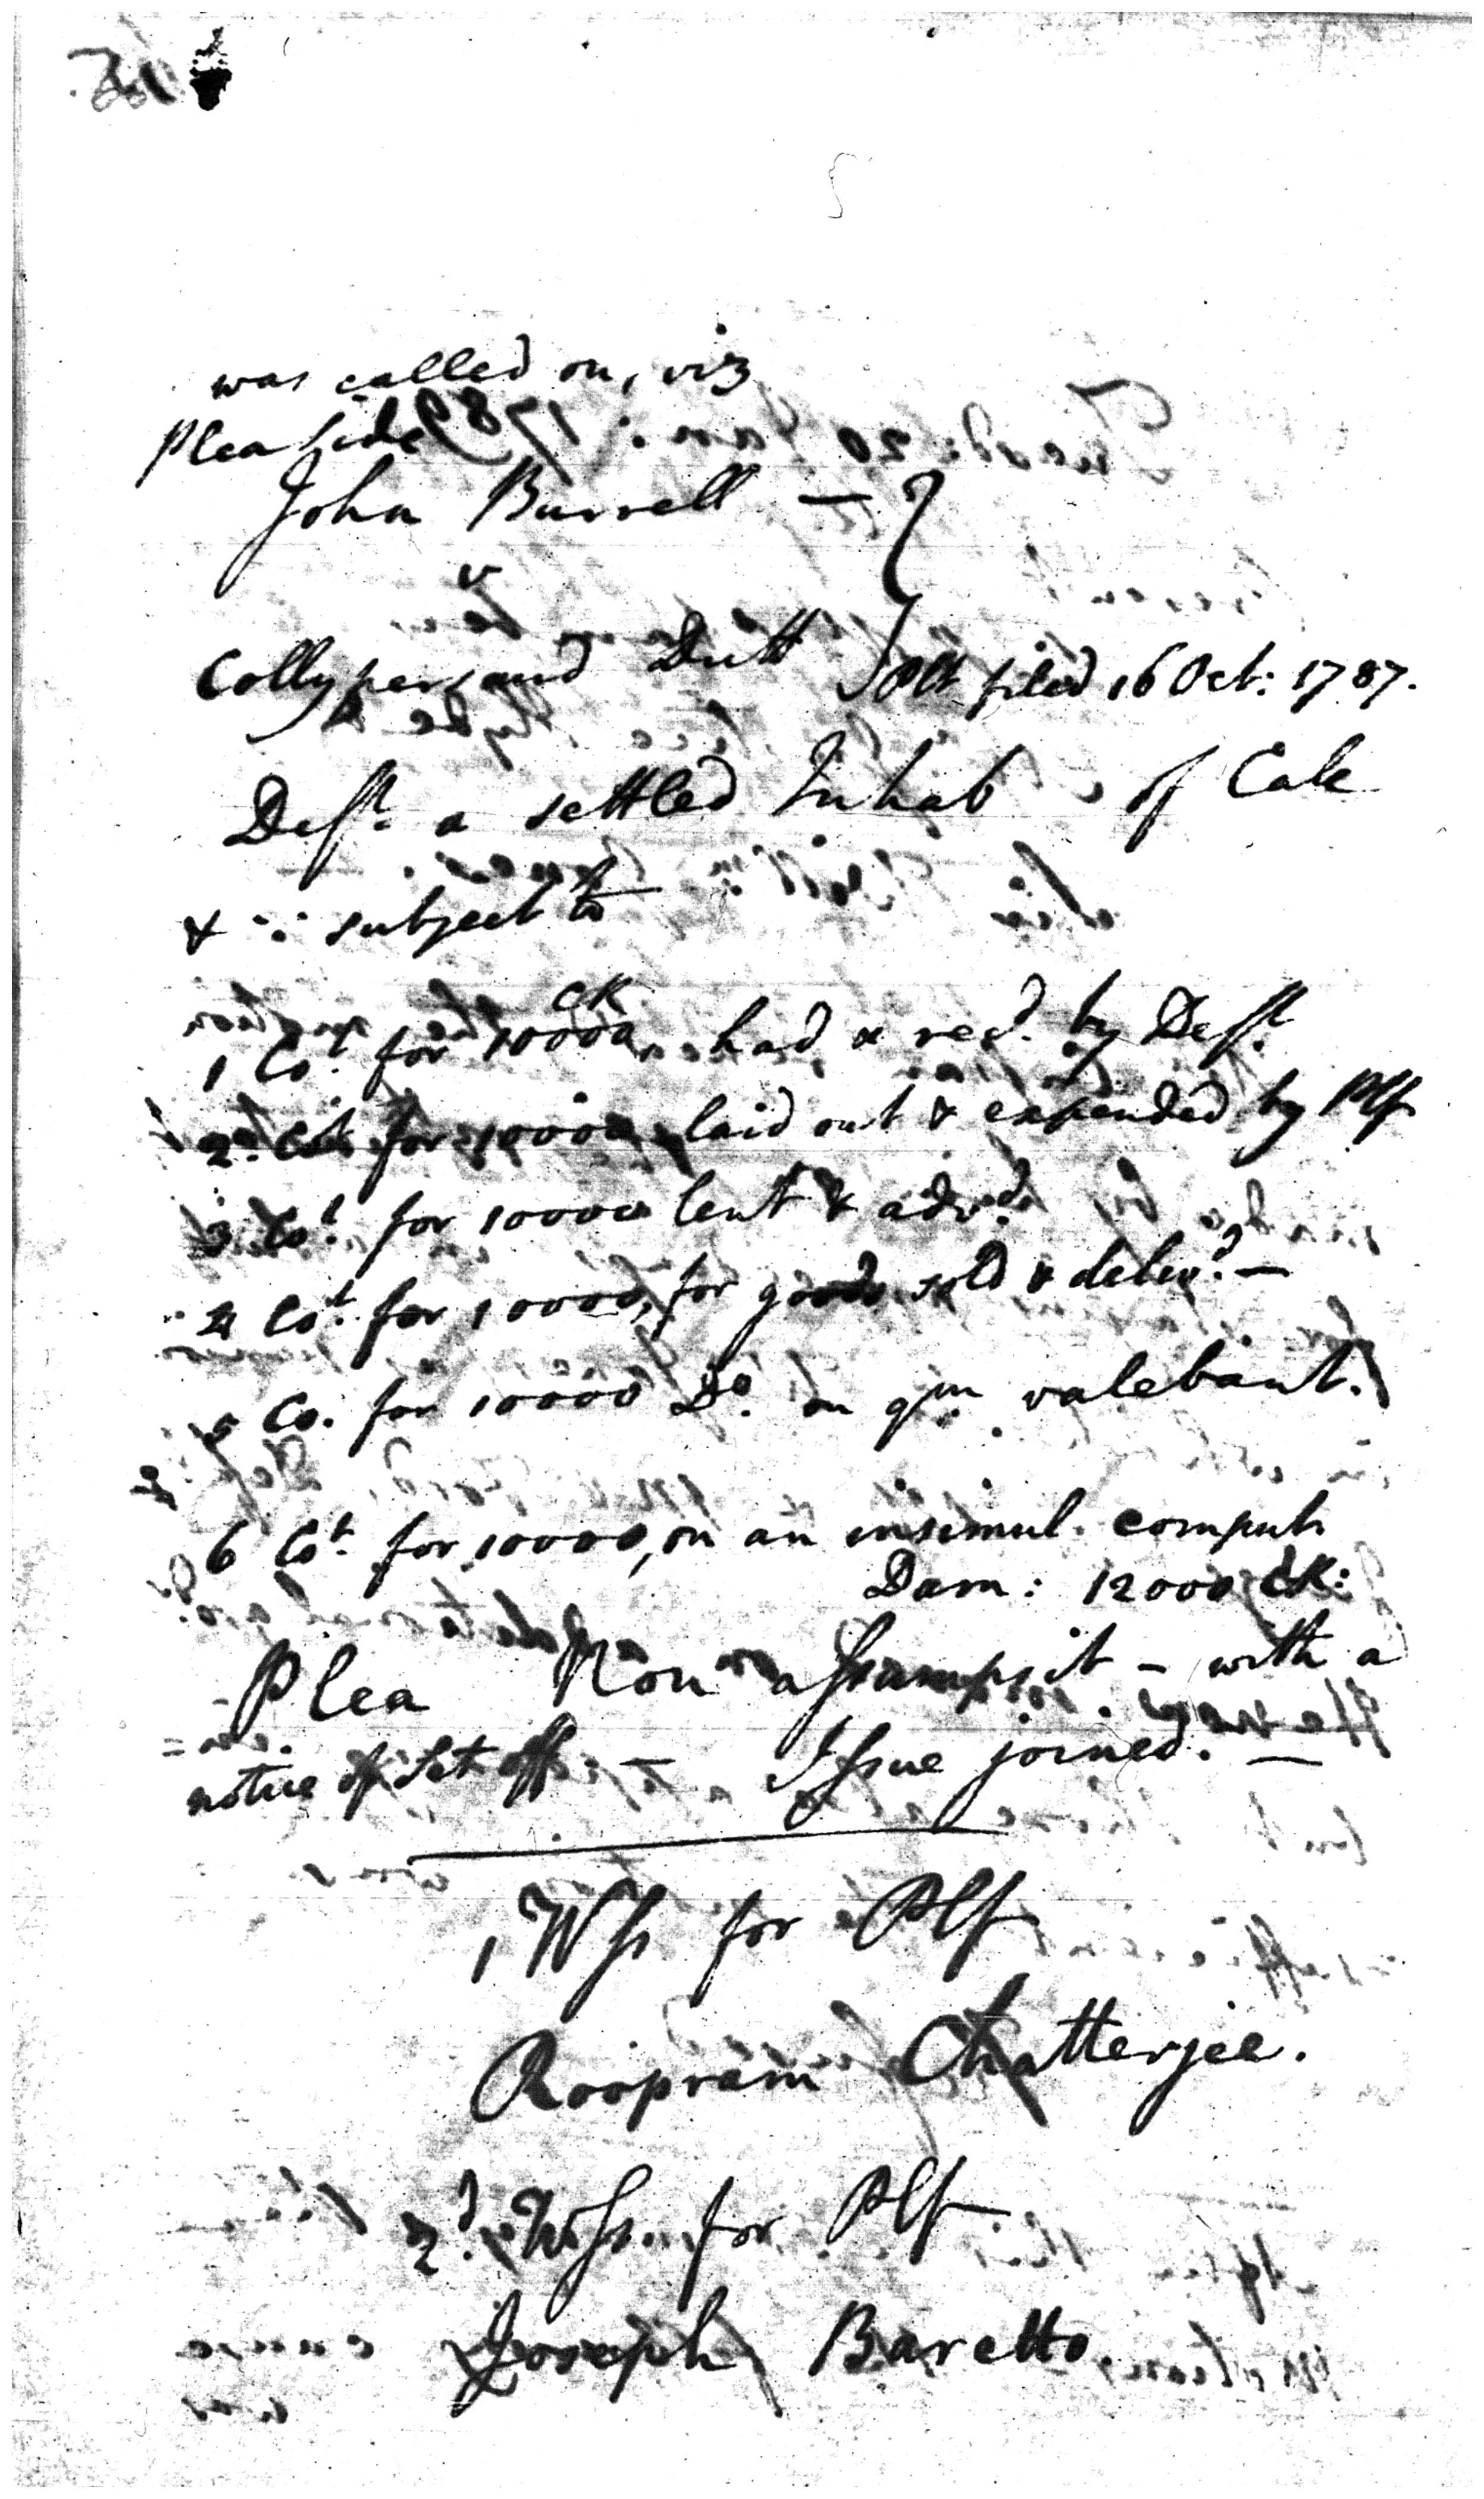 was called on, viz
Plea side
John Burrell —
v
Collypersaud Dutt Plt filed 16 Oct: 1787.
Deft. a settled Inhab of Calc
& ∵ subject to
CR
1 Ct. for 10000, had & recd. by Deft
2d. Ct for 10000 laid out & expended by Plf
3 Ct. for 10000 lent & advd.
4 Ct. for 10000, for goods sold & delivd. —
5 Co. for 10000 Do. on qm. valebant.
6 Ct. for 10000, on an insimul. comput.
Dam: 12000 CR:
Plea Non assumpsit – with a
notice of Set off — Issue joined. —
1 Wss for Plf
Roopram Chatterjee.
2d. Wss. for Plf
Joseph Baretto